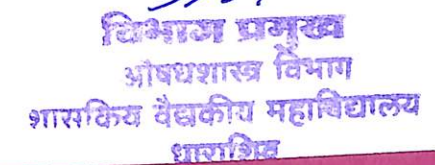 विभाग प्रमुख
औषधशास्त्र विभाग
शासकिय वैद्यकीय महाविद्यालय
धाराशिव